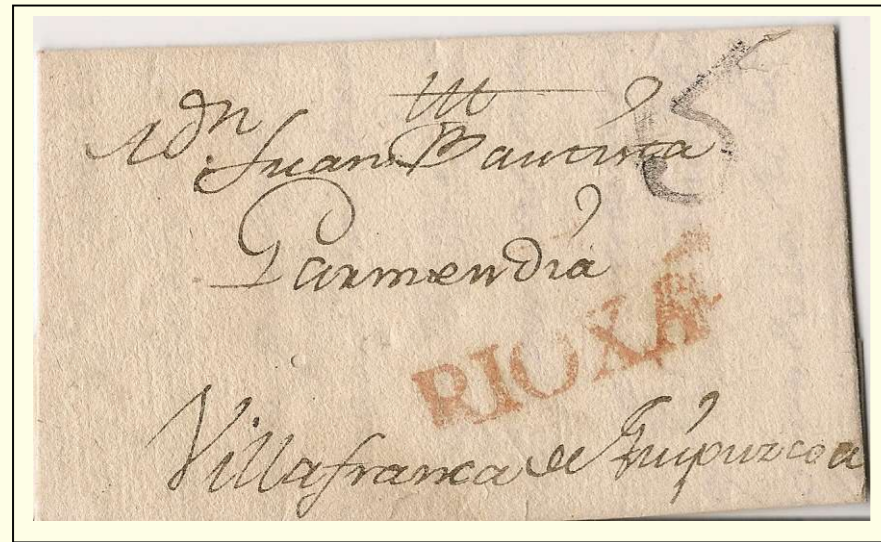 A Dn. Juan Bautista
5
Garmendia
RIOXA
Villafranca de Guipuzcoa